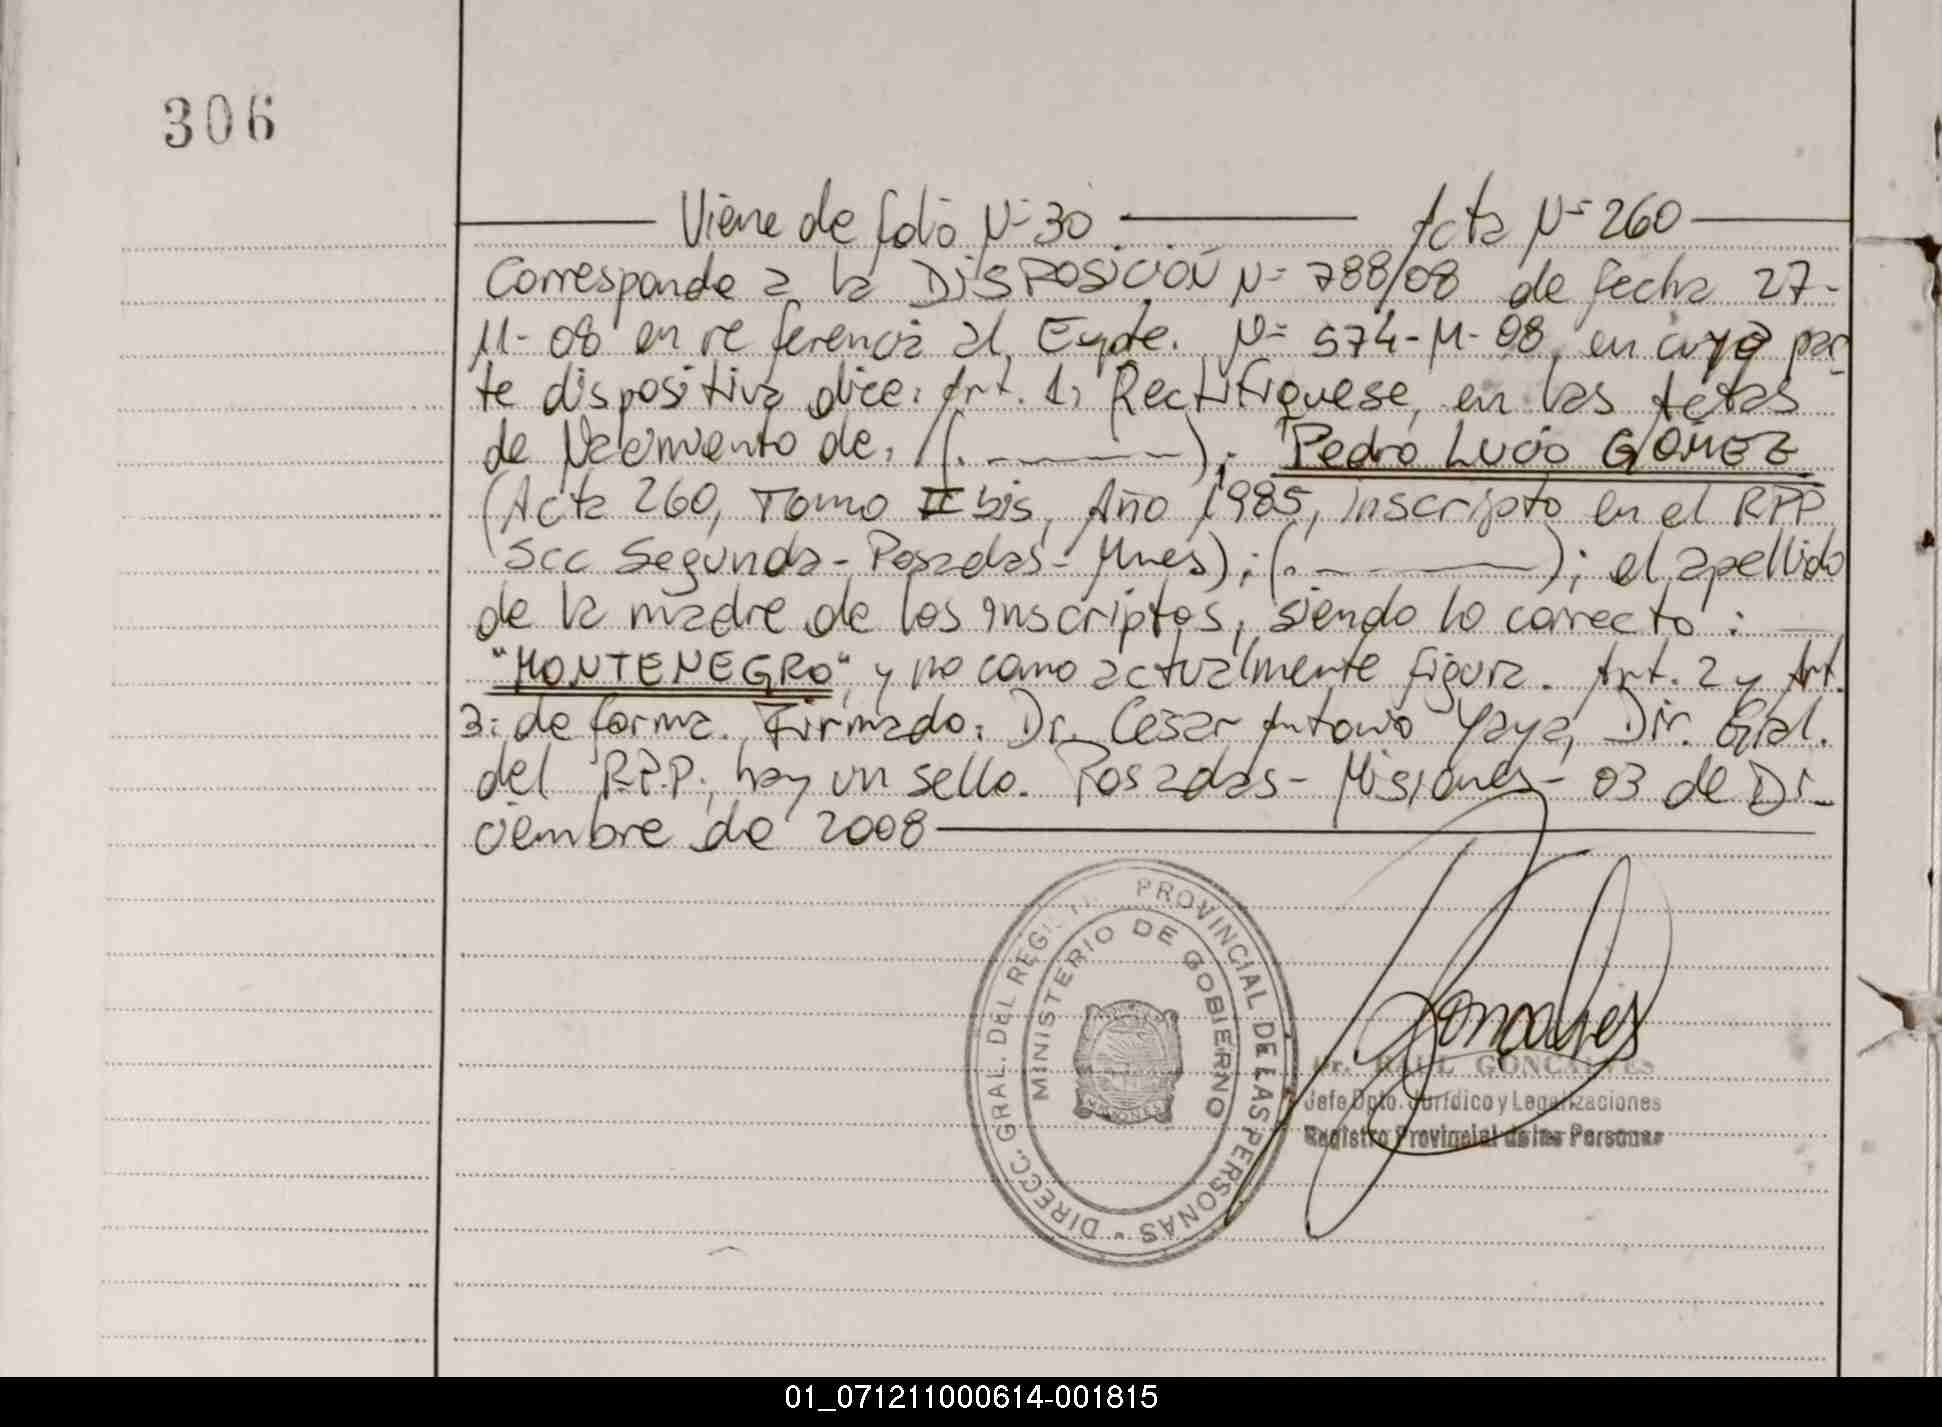 306
Viene de folio Nº 30 Acta Nº 260
Corresponde a la DISPOSICIÓN Nº 788/08 de fecha 27-
11-08 en referencia al Expte. Nº 574-M-08, en cuya par
te dispositiva dice: Art. 1: Rectifíquese, en las Actas
de Nacimiento de: (. ———); Pedro Lucio GÓMEZ
(Acta 260, Tomo II bis, Año 1985, inscripto en el RPP
Scc Segunda - Posadas - Mnes); (. ———); el apellido
de la madre de los inscriptos, siendo lo correcto :
"MONTENEGRO", y no como actualmente figura. Art. 2 y Art.
3: de forma. Firmado: Dr. César Antonio Yaya, Dir. Gral.
del R.P.P; hay un sello. Posadas - Misiones - 03 de Di_
ciembre de 2008
DIRECC. GRAL. DEL REGIST PROVINCIAL DE LAS PERSONAS -
MINISTERIO DE GOBIERNO
MISIONES
Goncalves
Dr. RAUL GONCALVES
Jefe Dpto. Jurídico y Legalizaciones
Registro Provincial de las Personas
01_071211000614-001815